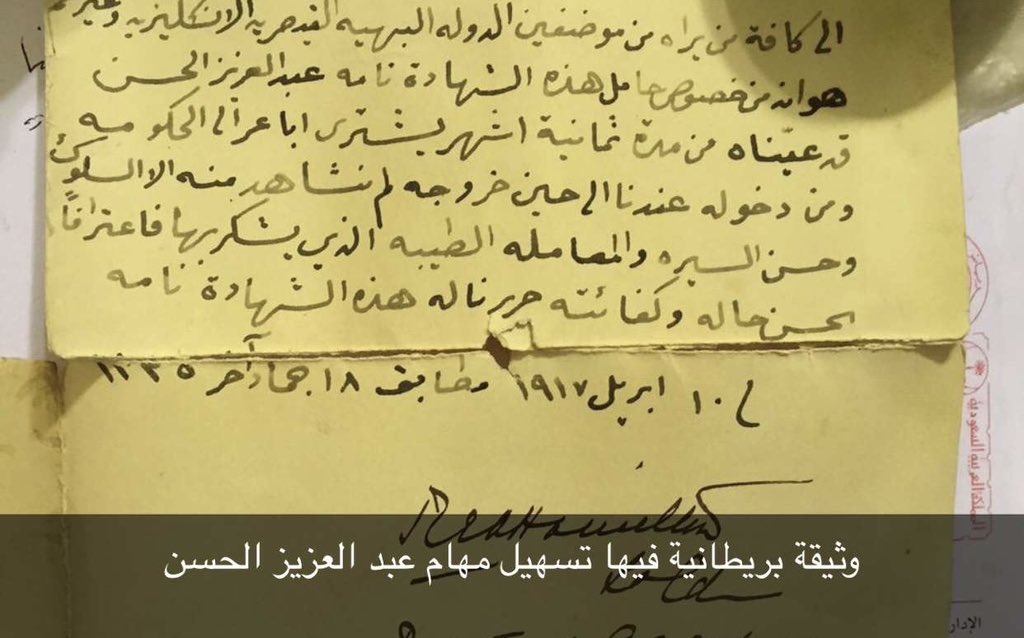 الى كافة من يراه من موضفين الدوله البهيه القيصريه الانكليزيه وغيره
هو انه من خصوص حامل هذه الشهادة نامه عبد العزيز الحسن
قد عيّناه من مدة ثمانية اشهر يشترى اباعر الى الحكومه
ومن دخوله عندنا الى حين خروجه لم نشاهد منه الا السلوك
وحسن السيره والمعامله الطيبه الذي يشكر بها فاعترافًا
لحسن حاله وكفائته حررنا له هذه الشهادة نامه
١٠ ابريل ١٩١٧ مطابق ١٨ جماد آخر ١٣٣٥
وثيقة بريطانية فيها تسهيل مهام عبد العزيز الحسن
المملكة العربية السعودية